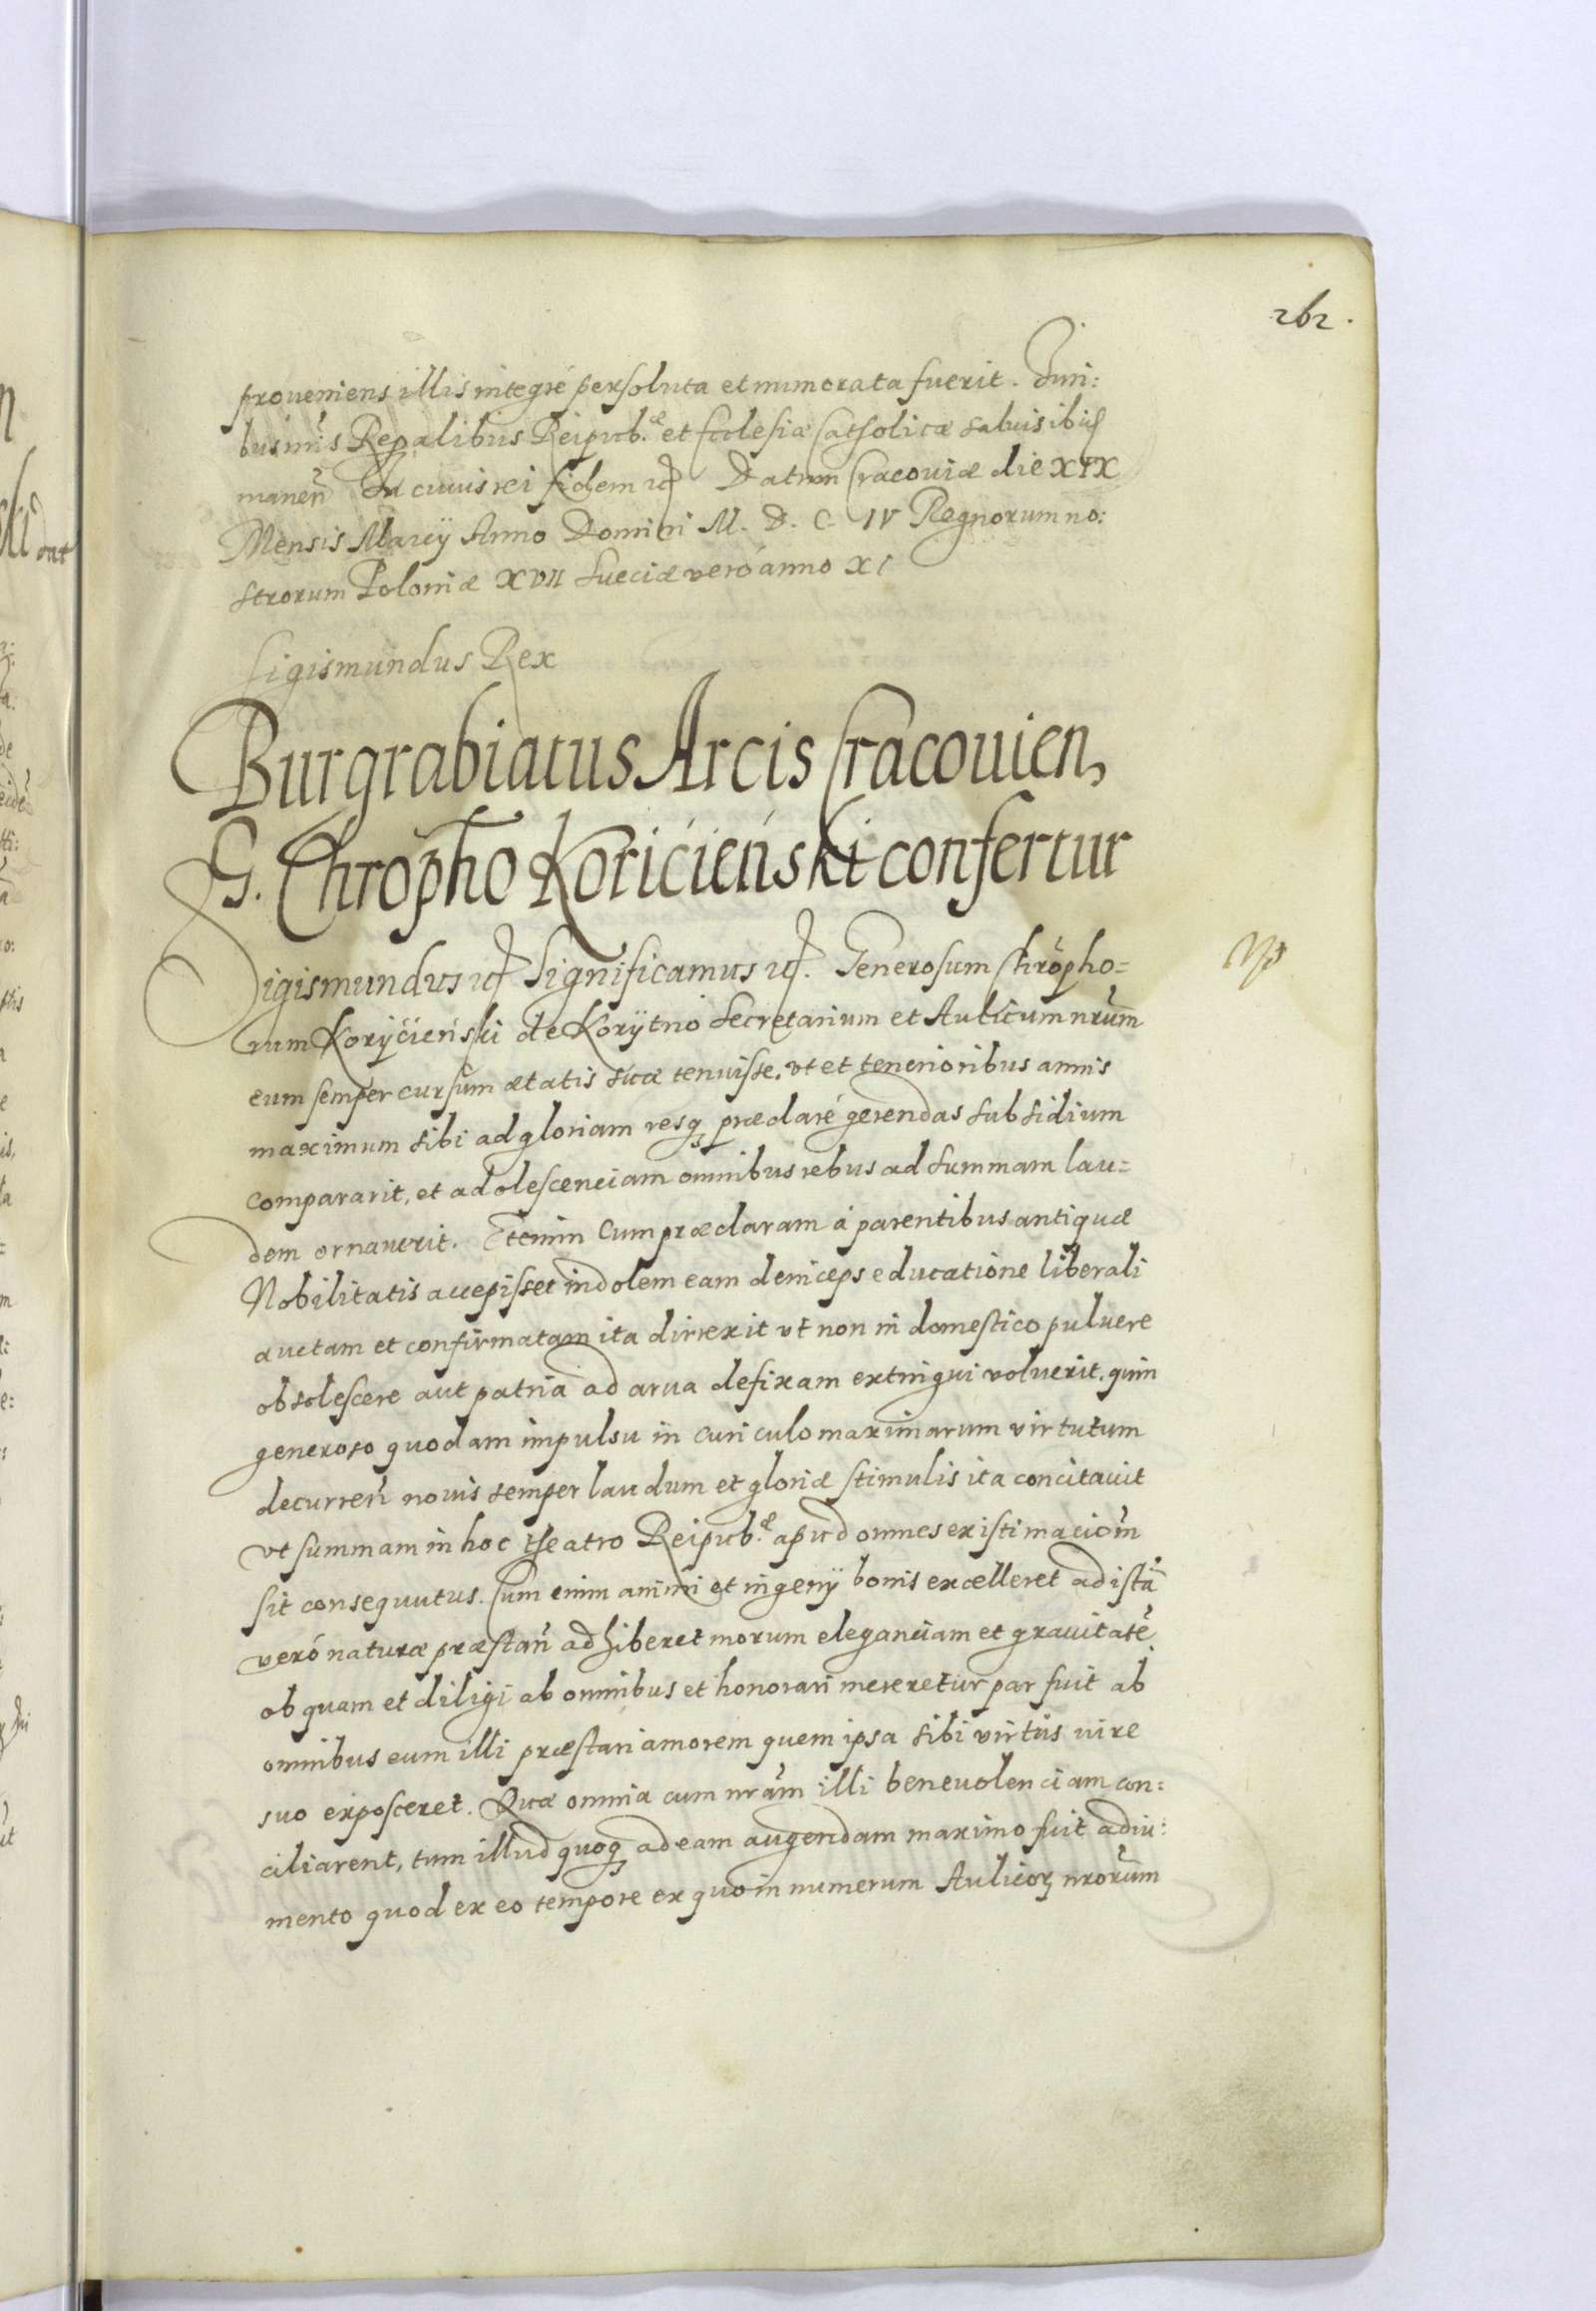 262.
proveniens illis integré persoluta et numerata fuerit. Iuri:
bus nr̃is Regalibus Reipub.æ et Ecclesiæ Catholicæ salvis ibid
manen̄ In cuius rei fidem etc Datum Cracoviæ die XIX
Mensis Marcij Anno Domini M. D. C. IV Regnorum no:
strorum Poloniæ XVII Sueciæ veró anno XI
Sigismundus Rex
Burgrabiatus Arcis Cracouien,
G. Chrõpho Koricieński confertur
Sigismundus etc Significamus etc. Generosum Chrõpho=
rum Koryčieński de Korÿtno Secretarium et Aulicum nrũm
eum semper cursum ætatis suæ tenuisse, vt et tenerioribus annis
maximum sibi ad gloriam resq3 præclaré gerendas subsidium
compararit, et adolescenciam omnibus rebus ad summam lau=
dem ornaverit. Etenim Cum præclaram á parentibus antiquæ
Nobilitatis accepisset indolem eam deinceps educatione liberali
auctam et confirmatam ita dirrexit vt non in domestico puluere
obsolescere aut patria ad arua defixam extingui voluerit, quin
generoso quodam impulsu in curiculo maximarum virtutum
decurren̄ nouis semper laudum et gloriæ stimulis ita concitauit
vt summam in hoc theatro Reipub.æ apud omnes existimaciom̃
sit consequutus. Cum enim animi et ingenÿ bonis excelleret ad istā
veró naturæ præstan̄ adhiberet morum eleganciam et grauitatē
ob quam et diligi ab omnibus et honorari mereretur par fuit ab
omnibus eum illi præstari amorem quem ipsa sibi virtus iure
suo exposceret. Quæ omnia cum nrãm illi benevolenciam con:
ciliarent, tum illud quoq3 ad eam augendam maximo fuit adiu:
mento quod ex eo tempore ex quo in numerum Aulicorꝝ nrorũm